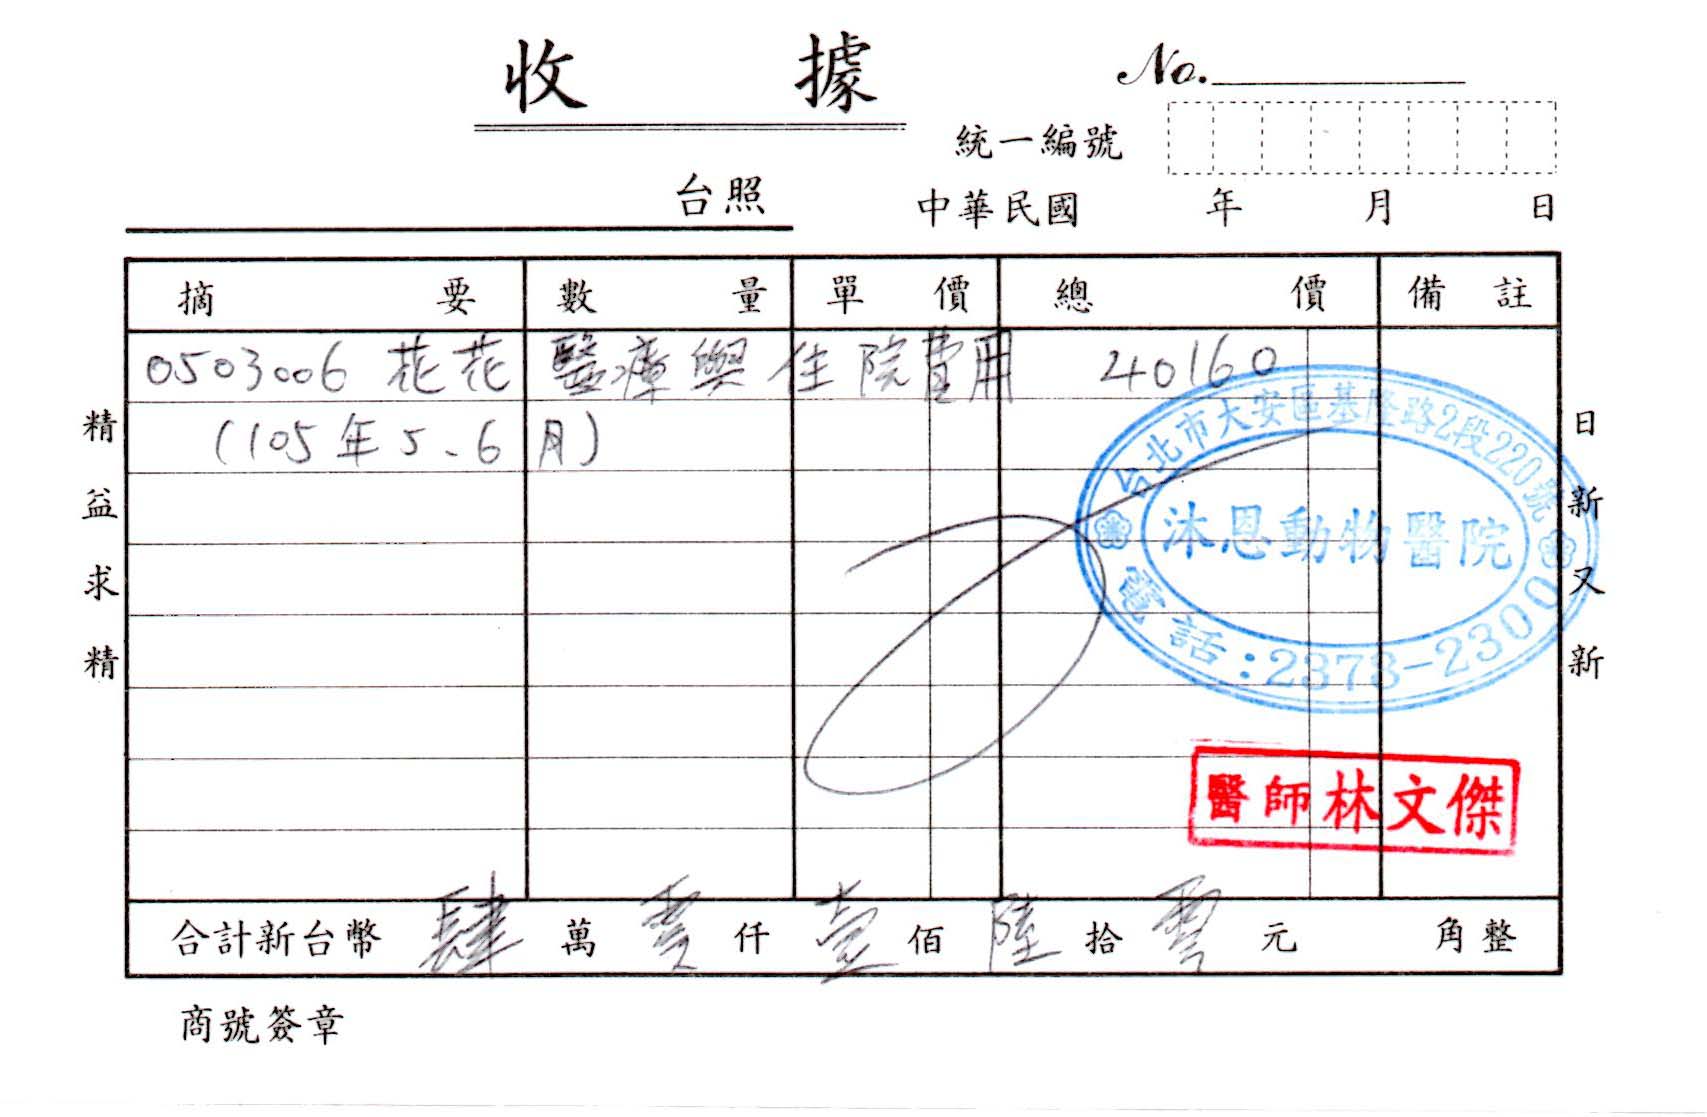 收據
No.
統一編號
台照
中華民國 年 月 日
摘要 數量 單價 總價 備註
0503006 花花 醫療與住院費用 40160
(105年5、6月)
精益求精
日新又新
台北市大安區基隆路2段220號
沐恩動物醫院
電話:2373-2300
醫師林文傑
合計新台幣 肆 萬 零 仟 壹 佰 陸 拾 零 元 角整
商號簽章